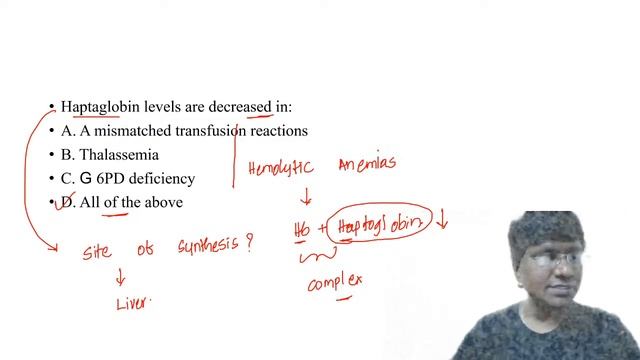 • Haptaglobin levels are decreased in:
• A. A mismatched transfusion reactions
• B. Thalassemia
• C. G 6PD deficiency
• D. All of the above
Hemolytic Anemias
Hb + Haptoglobin ↓
complex
Site of synthesis?
Liver.